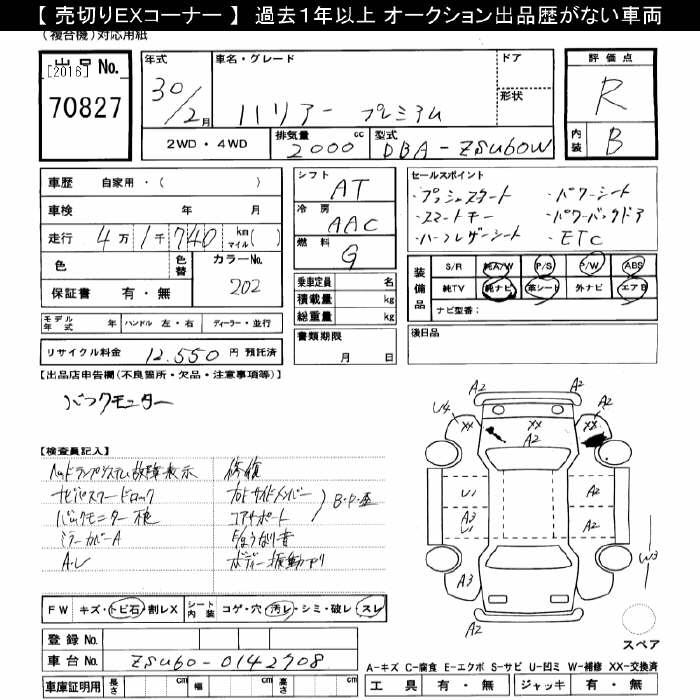 【 売切りEXコーナー 】 過去1年以上 オークション出品歴がない車両
(複合機)対応用紙
出品 No.
[2016]
70827
年式
30/2月
車名・グレード
ハリアー プレミアム
ドア
形状
評価点
R
内装
B
2WD・4WD
排気量
2000 cc
型式
DBA-ZSU60W
車歴 自家用・( )
車検 年 月
走行 4万1千740 km マイル( )
色
色替
カラーNo.
202
保証書 有・無
モデル年式 年 ハンドル 左・右 ディーラー・並行
リサイクル料金 12,550 円 預託済
シフト
AT
冷房
AAC
燃料
G
乗車定員 名
積載量 kg
総重量 kg
書類期限
月 日
セールスポイント
・プッシュスタート ・パワーシート
・スマートキー ・パワーバックドア
・ハーフレザーシート ・ETC
装備品
S/R 純A/W P/S P/W ABS
純TV 純ナビ 革シート 外ナビ エアB
ナビ型番:
後日品
【出品店申告欄(不良箇所・欠品・注意事項等)】
バックモニター
【検査員記入】
ヘッドランプシステム故障表示
ナビパスワードロック
バックモニター
ミラーカバーA
修復
Fロトサイドメンバー
コアサポート
B・P・歪
ボディー振動アリ
FW キズ・トビ石・割レX
シート内装 コゲ・穴・汚レ・シミ・破レ・スレ
登録 No.
車台 No. ZSU60-0142908
車庫証明用 長さ cm 幅 cm 高さ cm
A2
A2
U4
XX
XX
XX
A2
A2
U1
A3
U1
A3
A2
A2
A2
W3
A2
スペア
A-キズ C-腐食 E-エクボ S-サビ U-凹ミ W-補修 XX-交換済
工具 有・無 ジャッキ 有・無